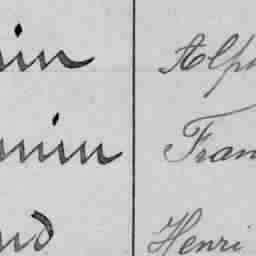 in Alph
min Fran
nd Henri